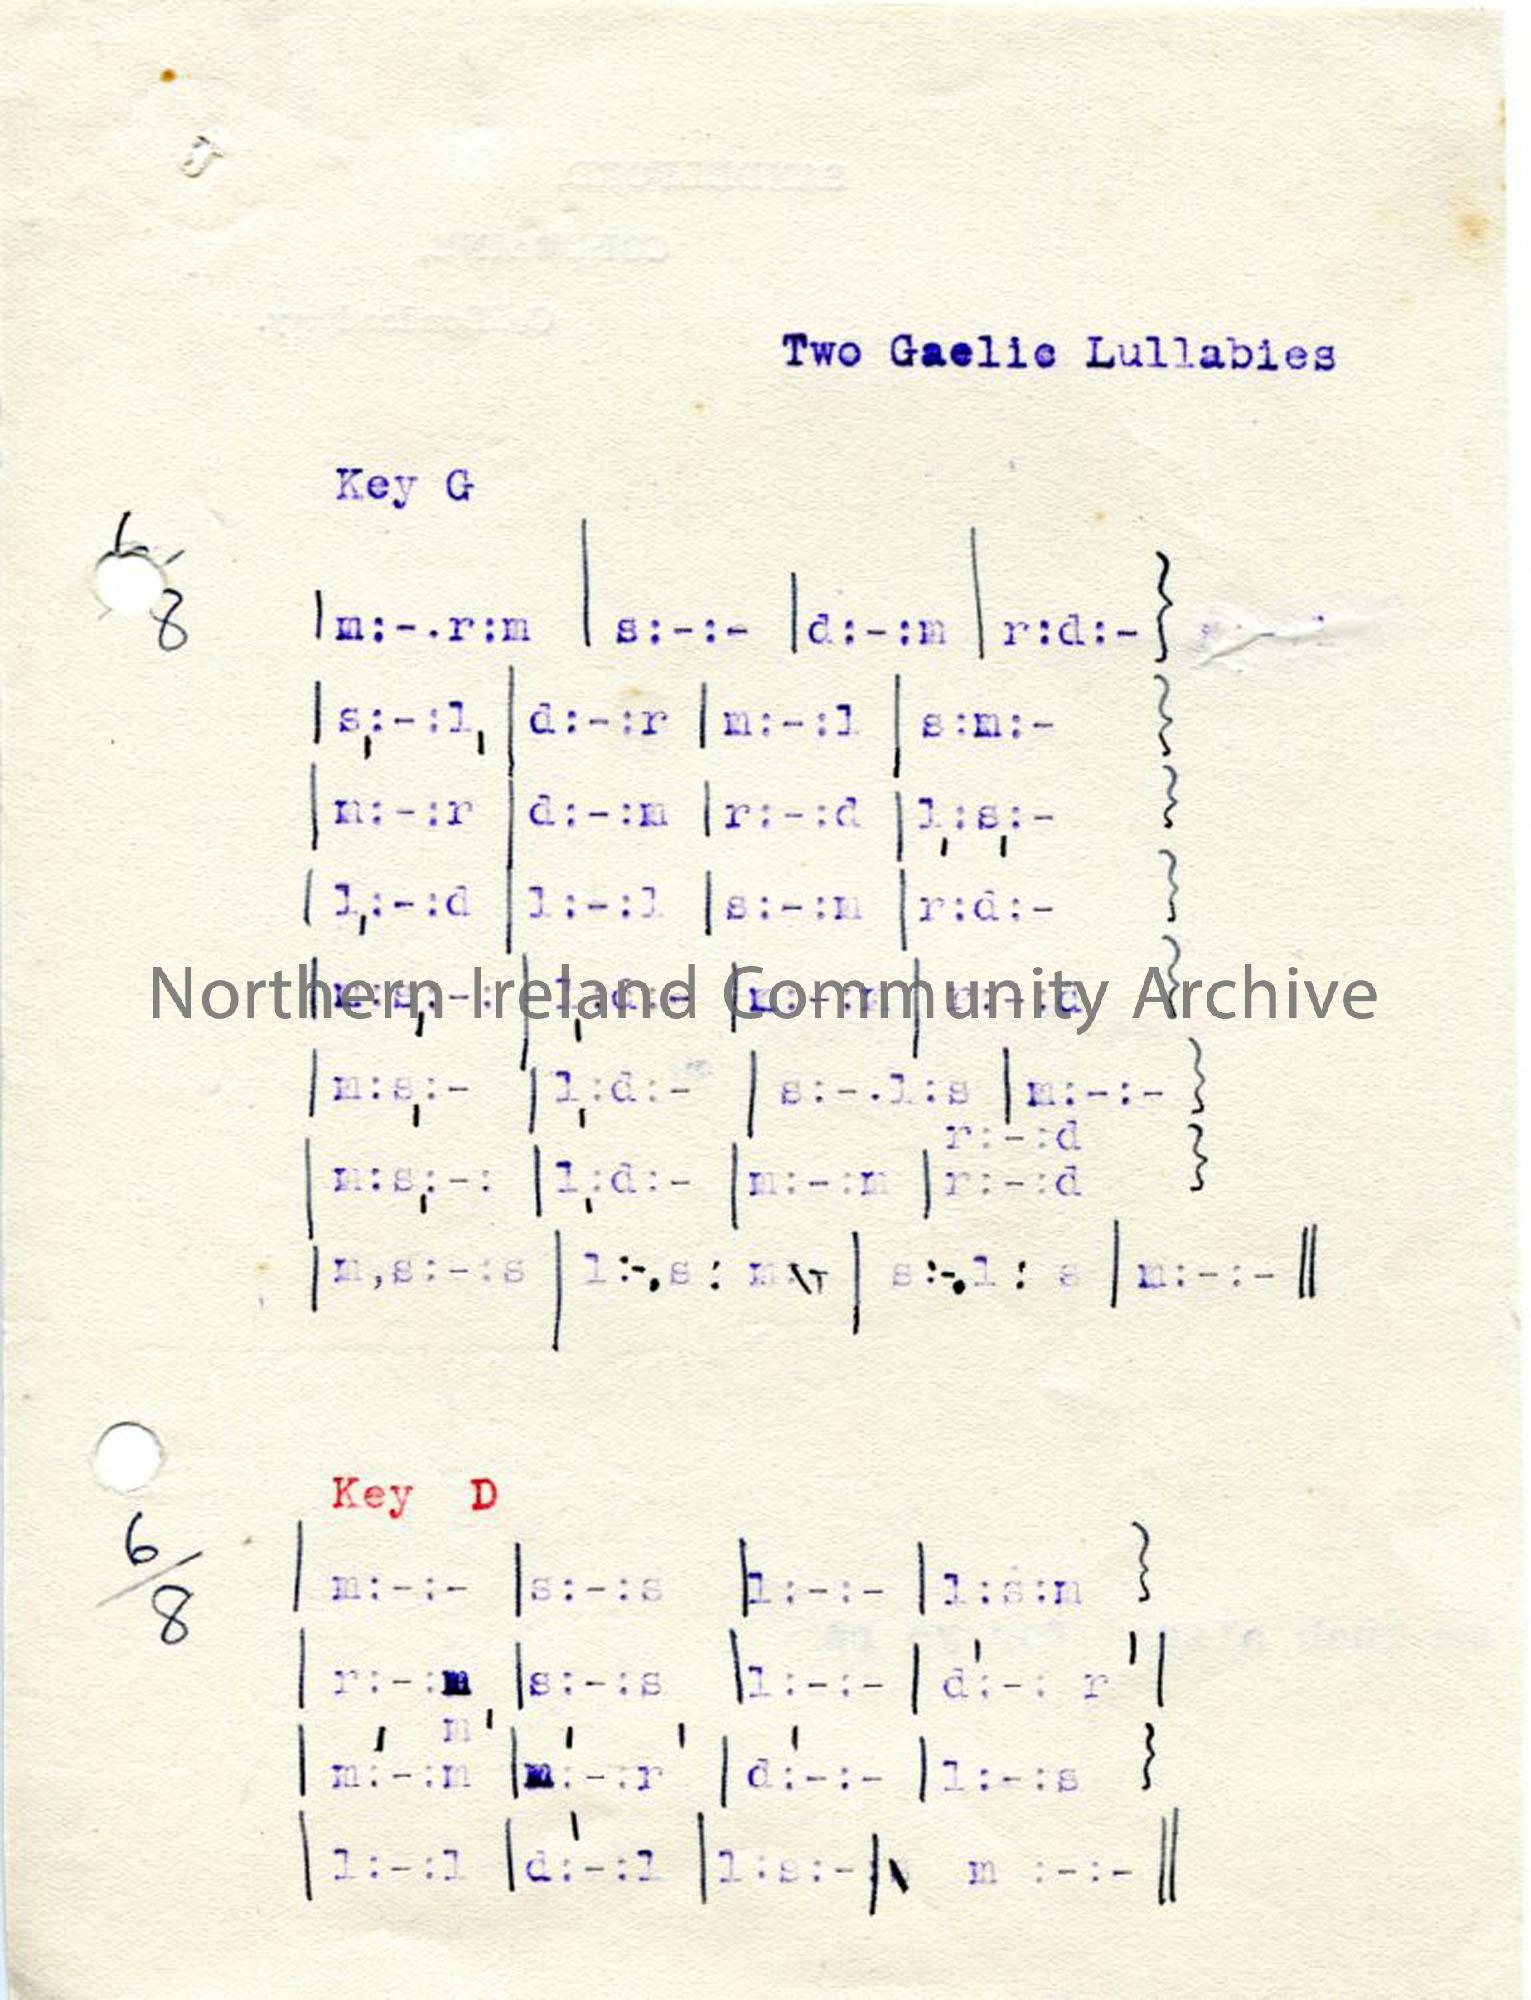 Two Gaelic Lullabies
Key G
6/8
|m:-.r:m | s:-:- |d:-:m |r:d:-}
|s,:-:l, |d:-:r |m:-:l |s:m:- }
|m:-:r |d:-:m |r:-:d |l,:s,:- }
|l,:-:d |l:-:l |s:-:m |r:d:- }
|m:s,:-: |l,:d:- |m:-:m |r:-:d }
Northern Ireland Community Archive
|m:s,:- |l,:d:- |s:-.l:s |m:-:-}
r:-:d
|m:s,:-: |l,:d:- |m:-:m |r:-:d }
|m,s:-:s |l:-.s: m | s:-.l: s |m:-:-||
Key D
6/8
| m:-:- |s:-:s |l:-:- |l:s:m }
| r:-:m |s:-:s |l:-:- | d':-: r' |
m'
| m':-:m |m':-:r' | d':-:- |l:-:s }
| l:-:l |d':-:l |l:s:-| m :-:-||